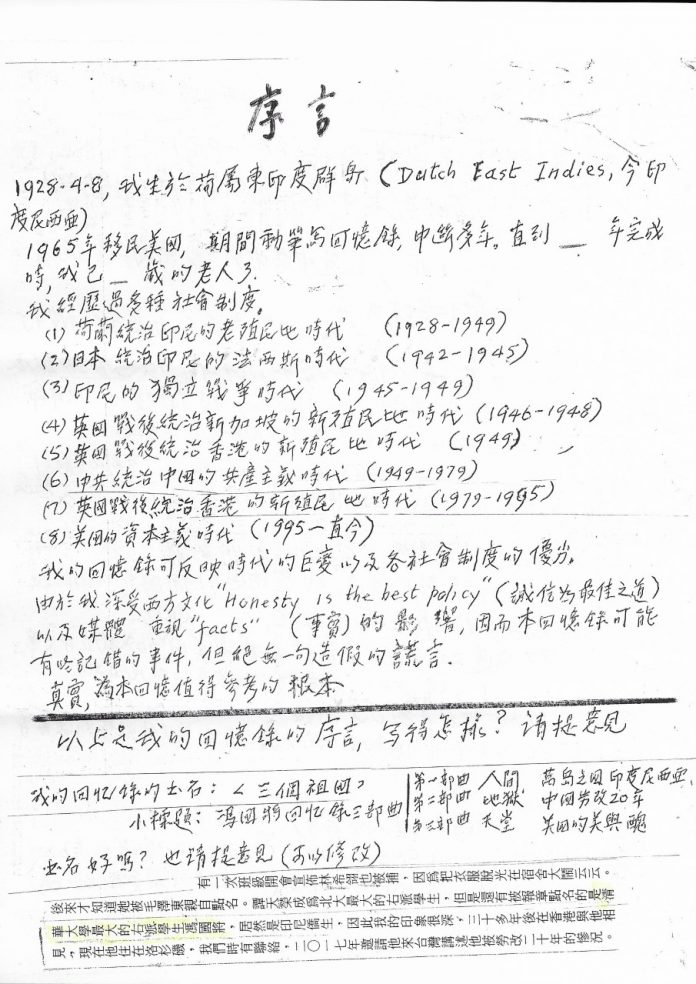 序言
1928-4-8, 我生於荷屬東印度群島 (Dutch East Indies, 今印
度尼西亜)
1965年移民美國, 期間動筆寫回憶錄, 中断多年。直到 __ 年完成
時, 我已 __ 歲的老人了.
我經歷過多種社會制度。
(1) 荷蘭統治印尼的老殖民地時代 (1928-1949)
(2) 日本統治印尼的法西斯時代 (1942-1945)
(3) 印尼的獨立戰爭時代 (1945-1949)
(4) 英國戰後統治新加坡的新殖民地時代 (1946-1948)
(5) 英國戰後統治香港的新殖民地時代 (1949)
(6) 中共統治中国的共產主義時代 (1949-1979)
(7) 英國戰後統治香港的新殖民地時代 (1979-1995)
(8) 美国的資本主義時代 (1995-直今)
我的回憶錄可反映時代的巨變以及各社會制度的優劣。
由於我深受西方文化"Honesty is the best policy" (誠信为最佳之道)
以及媒體 重視"facts" (事實) 的影響, 因而本回憶錄可能
有咚記错的事件, 但絕無一句造假的謊言.
真實, 為本回憶值得参考的根本
以上是我的回憶錄的序言, 写得怎樣? 请提意见
我的回忆錄的书名: 〈三個祖国〉
小标题: 冯国將回忆录三部曲
第一部曲 人間 萬島之国印度尼西亜,
第二部曲 地獄 中国劳改20年,
第三部曲 天堂 美国的美與醜
书名好嗎? 也请提意见 (可以修改)
有一次班級開會宣佈林希翎也被捕，因為把衣服脫光在宿舍大鬧云云。
後來才知道她被毛澤東親自點名。譚天榮成為北大最大的右派學生，但是還有被報章點名的是清
華大學最大的右派學生馮國將，居然是印尼僑生，因此我的印象很深，三十多年後在香港與他相
見，現在他住在洛杉磯，我們時有聯絡，二〇一七年邀請他來台灣講述他被勞改二十年的慘況。